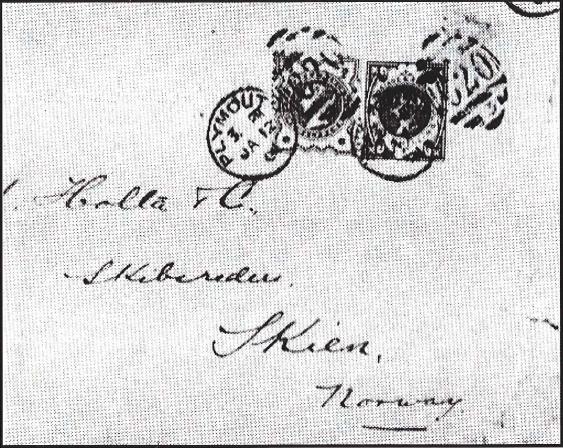 PLYMOUT
JA
620
Holla & C.,
Skibsreders.
Skien,
Norway